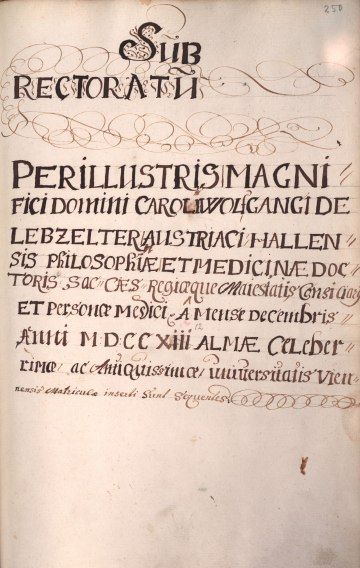 250
SUB
RECTORATŨ
PERILLUSTRIS, MAGNI//
FICI DOMINI CAROLI WOLFGANGI DE
LEBZELTER, AUSTRIACI HALLEN//
SIS PHILOSOPHIÆ ET MEDICINÆ DOC//
TORIS SAC: CÆS: Regiæque Maiestatis Consiliarÿ
ET Personæ Medici, A Mense Decembris
Anni MDCCXIII ALMÆ Celeber//
rimæ ac Antiquissimæ Universitatis Vien//
nensis Matriculæ inserti Sunt Sequentes.